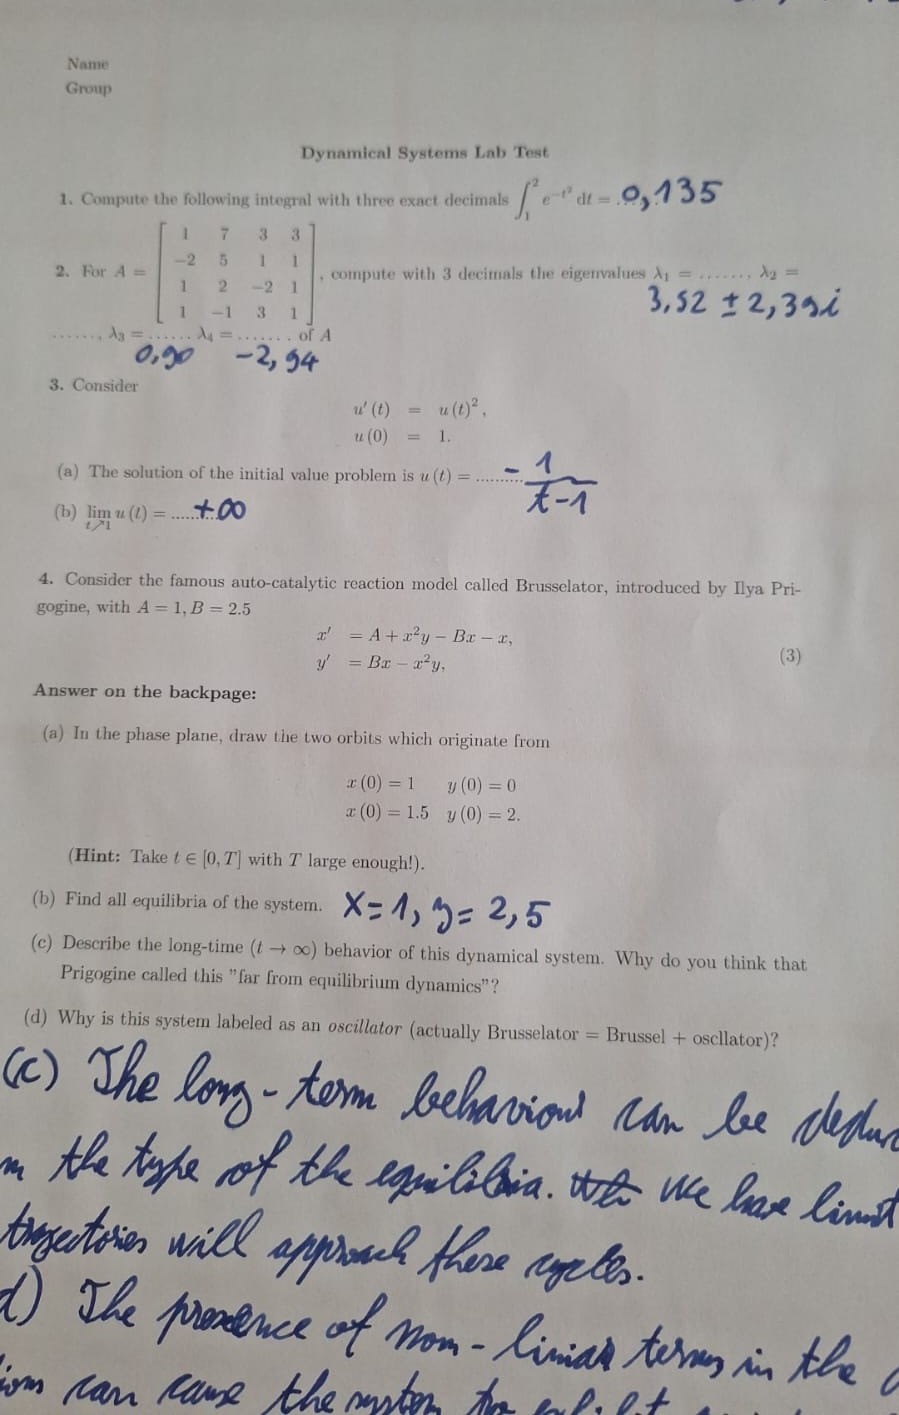 Name
Group
Dynamical Systems Lab Test
1. Compute the following integral with three exact decimals ∫₁² e^{-t²} dt = ........ 0,135
2. For A = [ 1 7 3 3 ; -2 5 1 1 ; 1 2 -2 1 ; 1 -1 3 1 ], compute with 3 decimals the eigenvalues λ₁ = ......., λ₂ =
3,52 ± 2,39i
......, λ₃ = ...... λ₄ = ....... of A
0,90 -2,94
3. Consider
u′(t) = u(t)²,
u(0) = 1.
(a) The solution of the initial value problem is u(t) = .......... - 1/(t-1)
(b) lim_{t↗1} u(t) = ......... +∞
4. Consider the famous auto-catalytic reaction model called Brusselator, introduced by Ilya Pri-
gogine, with A = 1, B = 2.5
x′ = A + x²y − Bx − x,
y′ = Bx − x²y,
(3)
Answer on the backpage:
(a) In the phase plane, draw the two orbits which originate from
x(0) = 1 y(0) = 0
x(0) = 1.5 y(0) = 2.
(Hint: Take t ∈ [0, T] with T large enough!).
(b) Find all equilibria of the system. x=1, y= 2,5
(c) Describe the long-time (t → ∞) behavior of this dynamical system. Why do you think that
Prigogine called this "far from equilibrium dynamics"?
(d) Why is this system labeled as an oscillator (actually Brusselator = Brussel + oscllator)?
(c) The long-term behaviour can be
the type of the equilibria. We have limit
trajectories will approach these cycles.
d) The presence of non-liniar terms in the
can cause the system to